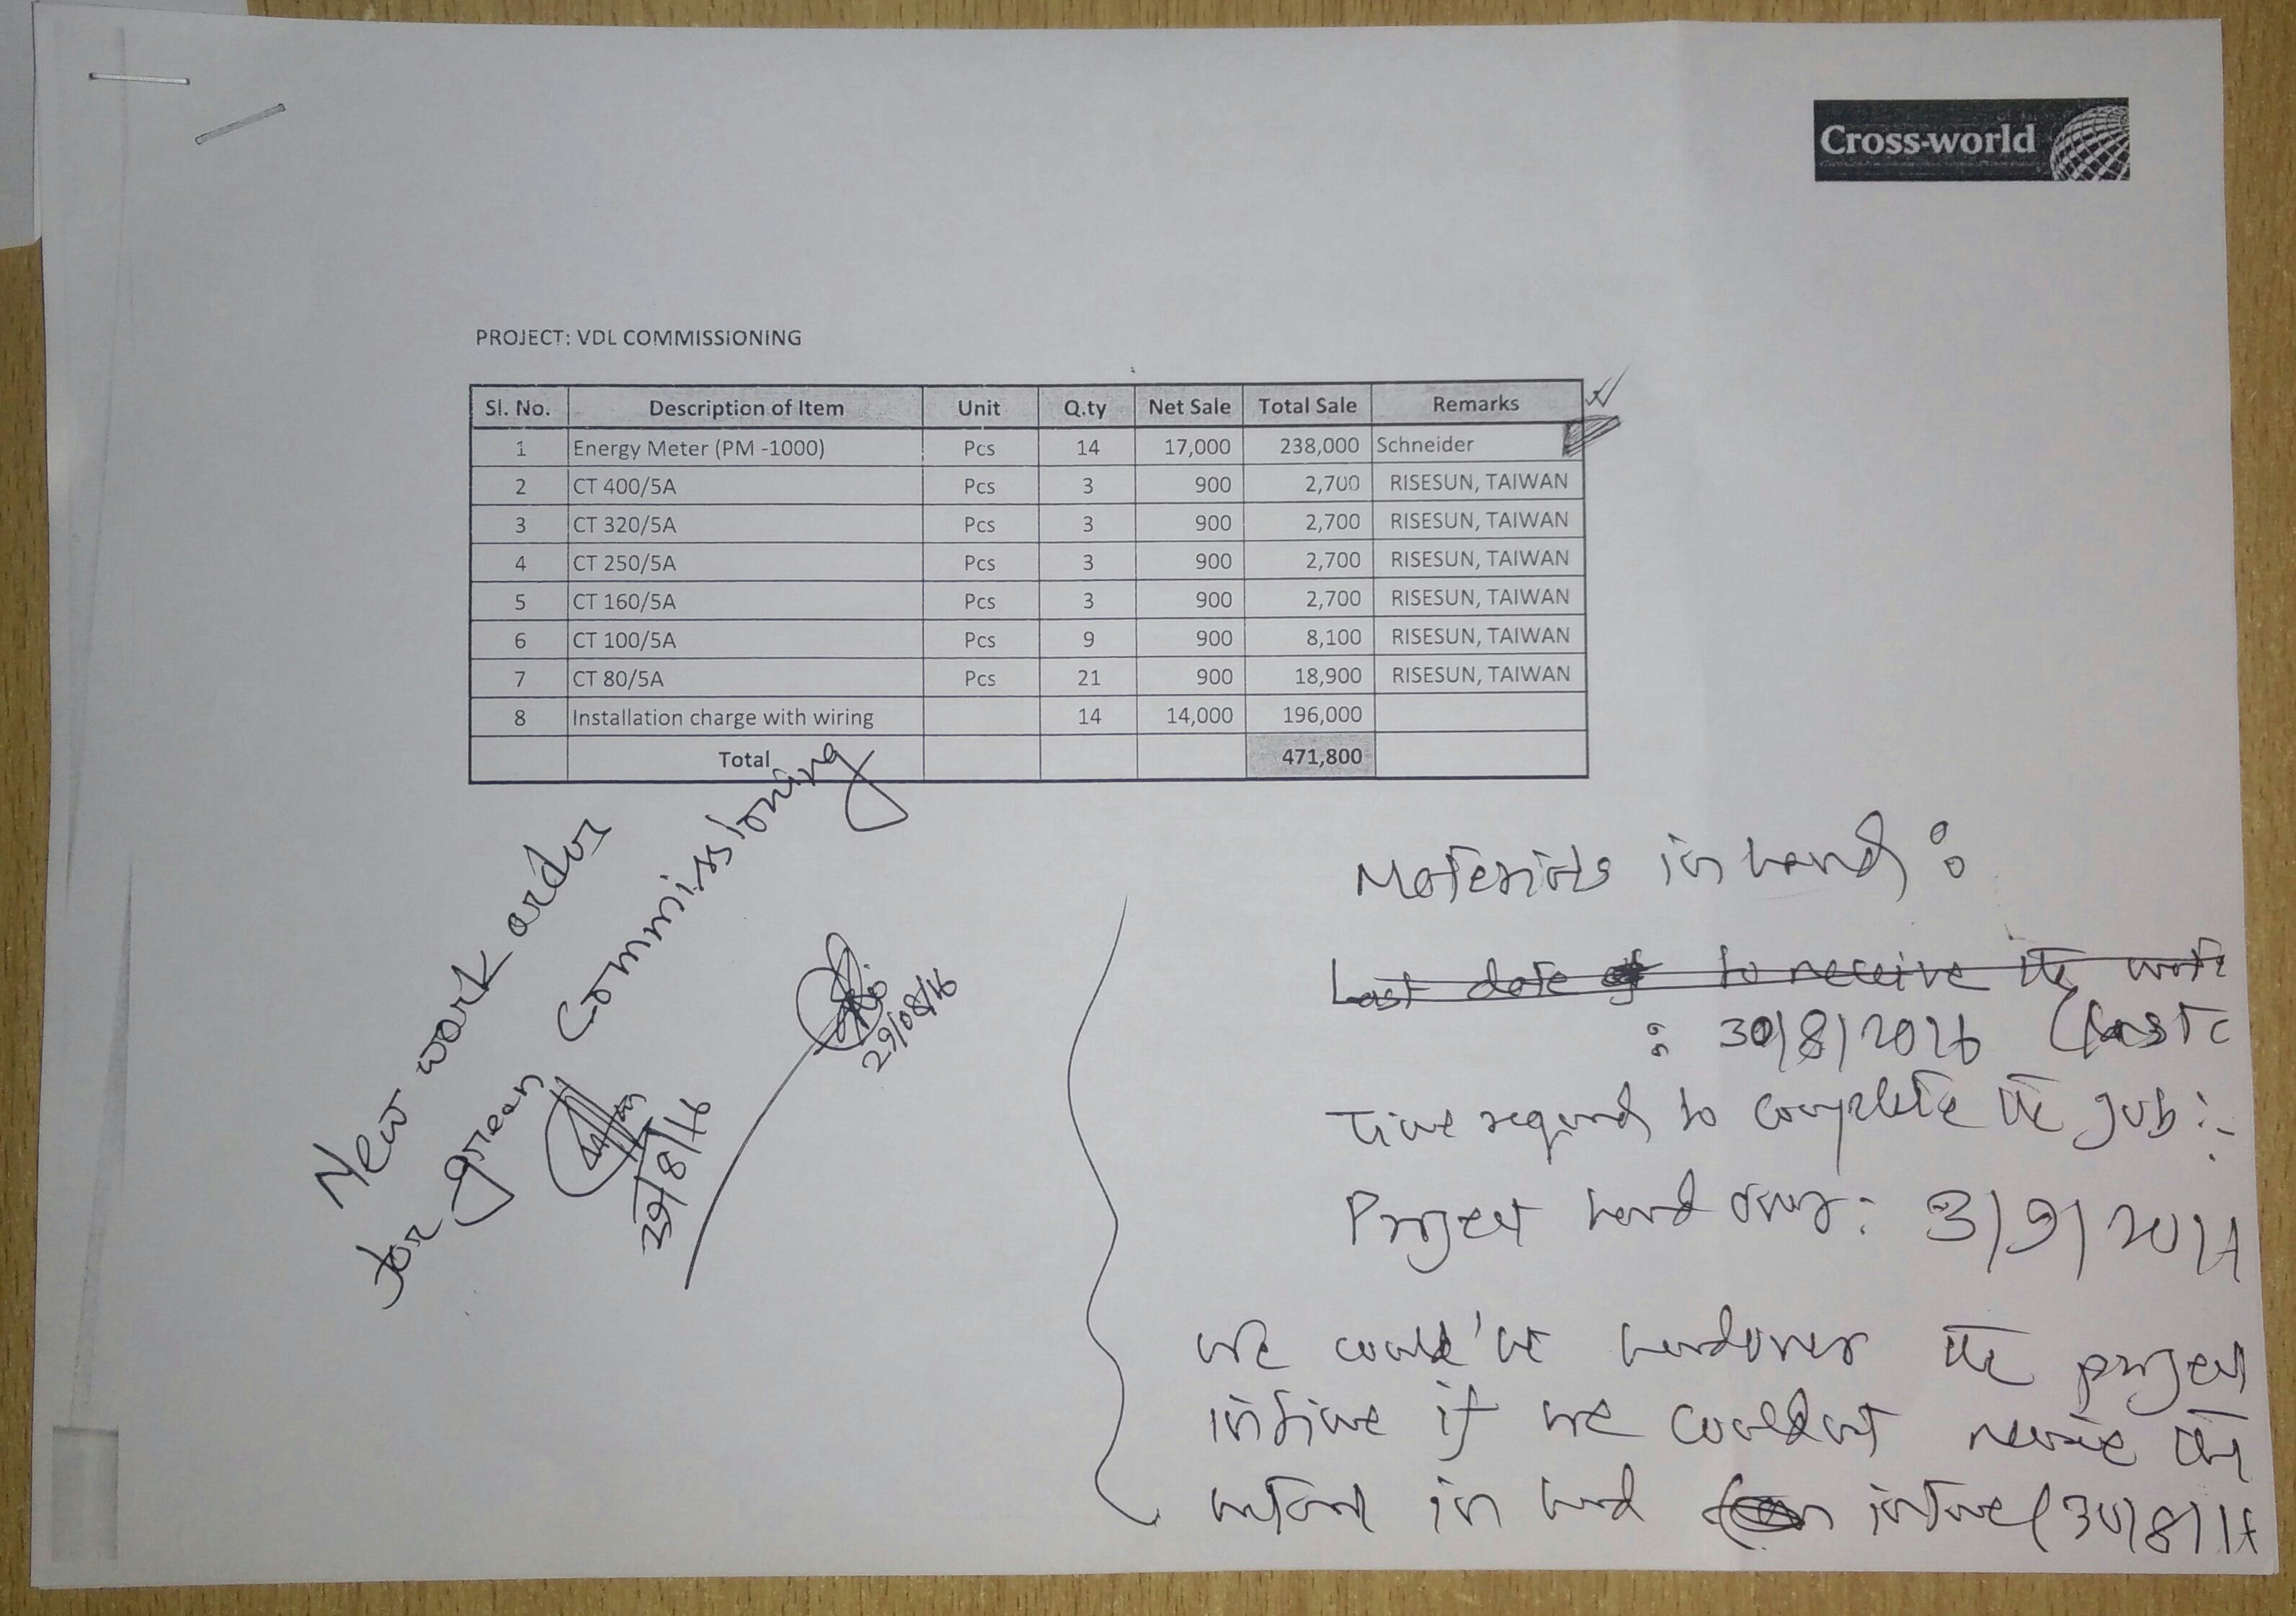 Cross-world
PROJECT: VDL COMMISSIONING
Sl. No. Description of Item Unit Q.ty Net Sale Total Sale Remarks
1 Energy Meter (PM -1000) Pcs 14 17,000 238,000 Schneider
2 CT 400/5A Pcs 3 900 2,700 RISESUN, TAIWAN
3 CT 320/5A Pcs 3 900 2,700 RISESUN, TAIWAN
4 CT 250/5A Pcs 3 900 2,700 RISESUN, TAIWAN
5 CT 160/5A Pcs 3 900 2,700 RISESUN, TAIWAN
6 CT 100/5A Pcs 9 900 8,100 RISESUN, TAIWAN
7 CT 80/5A Pcs 21 900 18,900 RISESUN, TAIWAN
8 Installation charge with wiring 14 14,000 196,000
Total 471,800
New work order
for green Commissioning
29/8/16
29/08/16
Materials in hand :
Last date to receive the
: 30/8/2016
Time requird to complete the job :-
Project hand over : 3/9/201
we could'nt handover the project
intime if we couldnt receive the
in hand intime (30/8/1